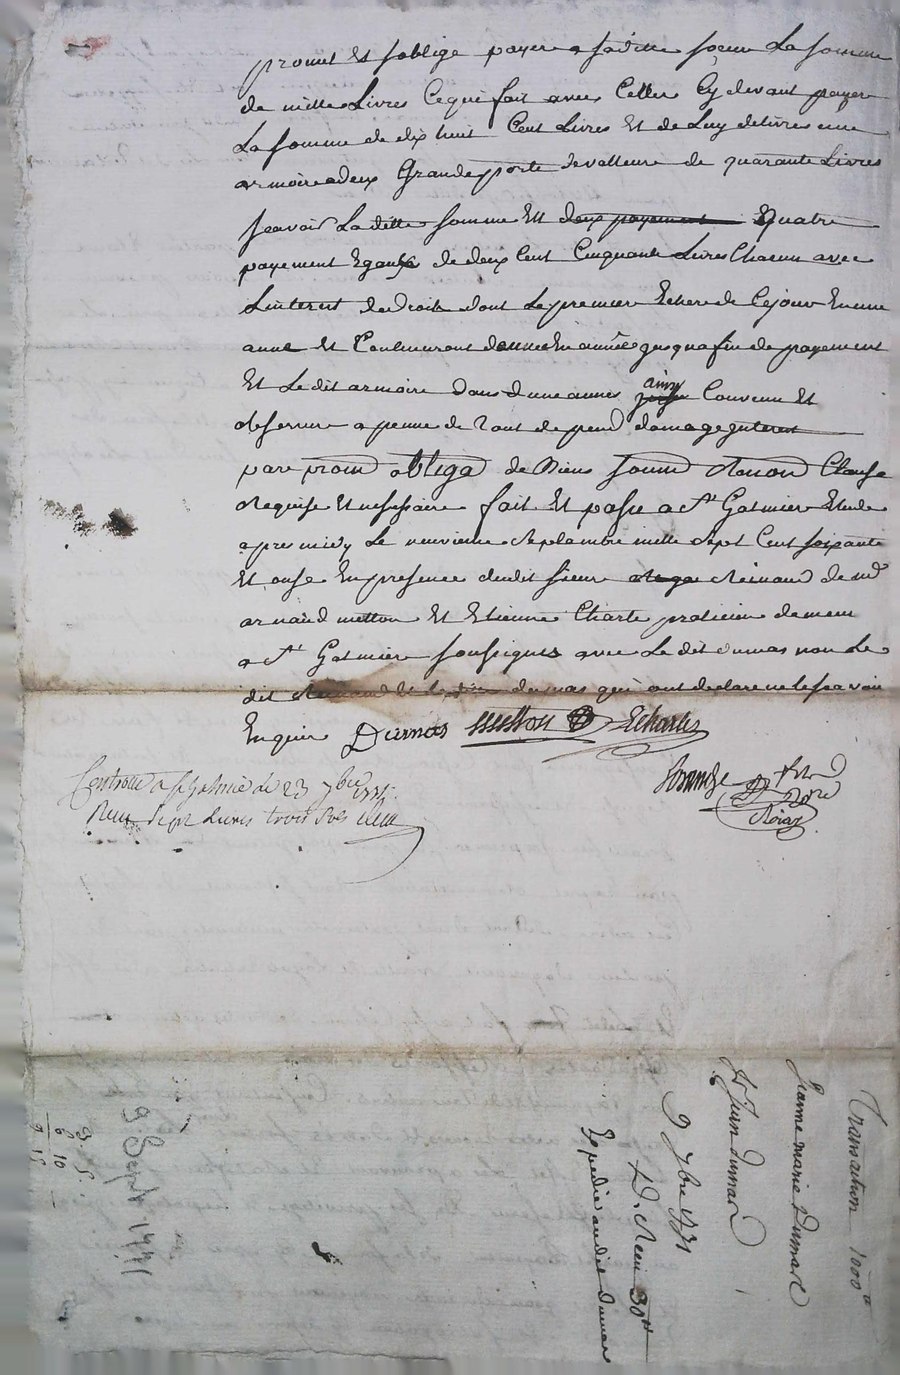 promet et soblige payer a sa ditte soeur La somme
de mille Livres Ce qui fait avec Celles Cy devant payer
La somme de dix huit Cent Livres Et de Luy delivrer une
armoire a deux Grande porte de valleure de quarante Livres
scavoir La ditte somme En deux payement quatre
payement Egaux de deux Cent Cinquante Livres Chacun avec
Linterest de droit dont Le premier Echera de Ce jour En une
anne et Continueront danne En année jusqua fin de payement
Et Le dit armoire dans dune annes ainsy Convenu Et
observer a penne de tout depend domage interest
pare prom obliga de Biens soum Renon Clause
Requise Et nessessaire fait Et passe a St Galmier Etude
apres midy Le neuvieme Septembre mille Sept Cent soixante
Et onse En presence dudit sieur Reinaud de md
arnaud metton Et Etienne Charle praticien demeu
a St Galmier soussignes avec Le dit dumas non Le
dit dumas qui ont declare ne le scavoir
Enquis Dumas Metton E Charles
Controllé a St Galmier le 23 7bre 1771
Reçu Sept Livres trois Sols
Transaction 1000
Jeanne marie Dumas
Et Jean dumas
9 7bre 1771
Expedié au dit dumas
9 Sept 1771